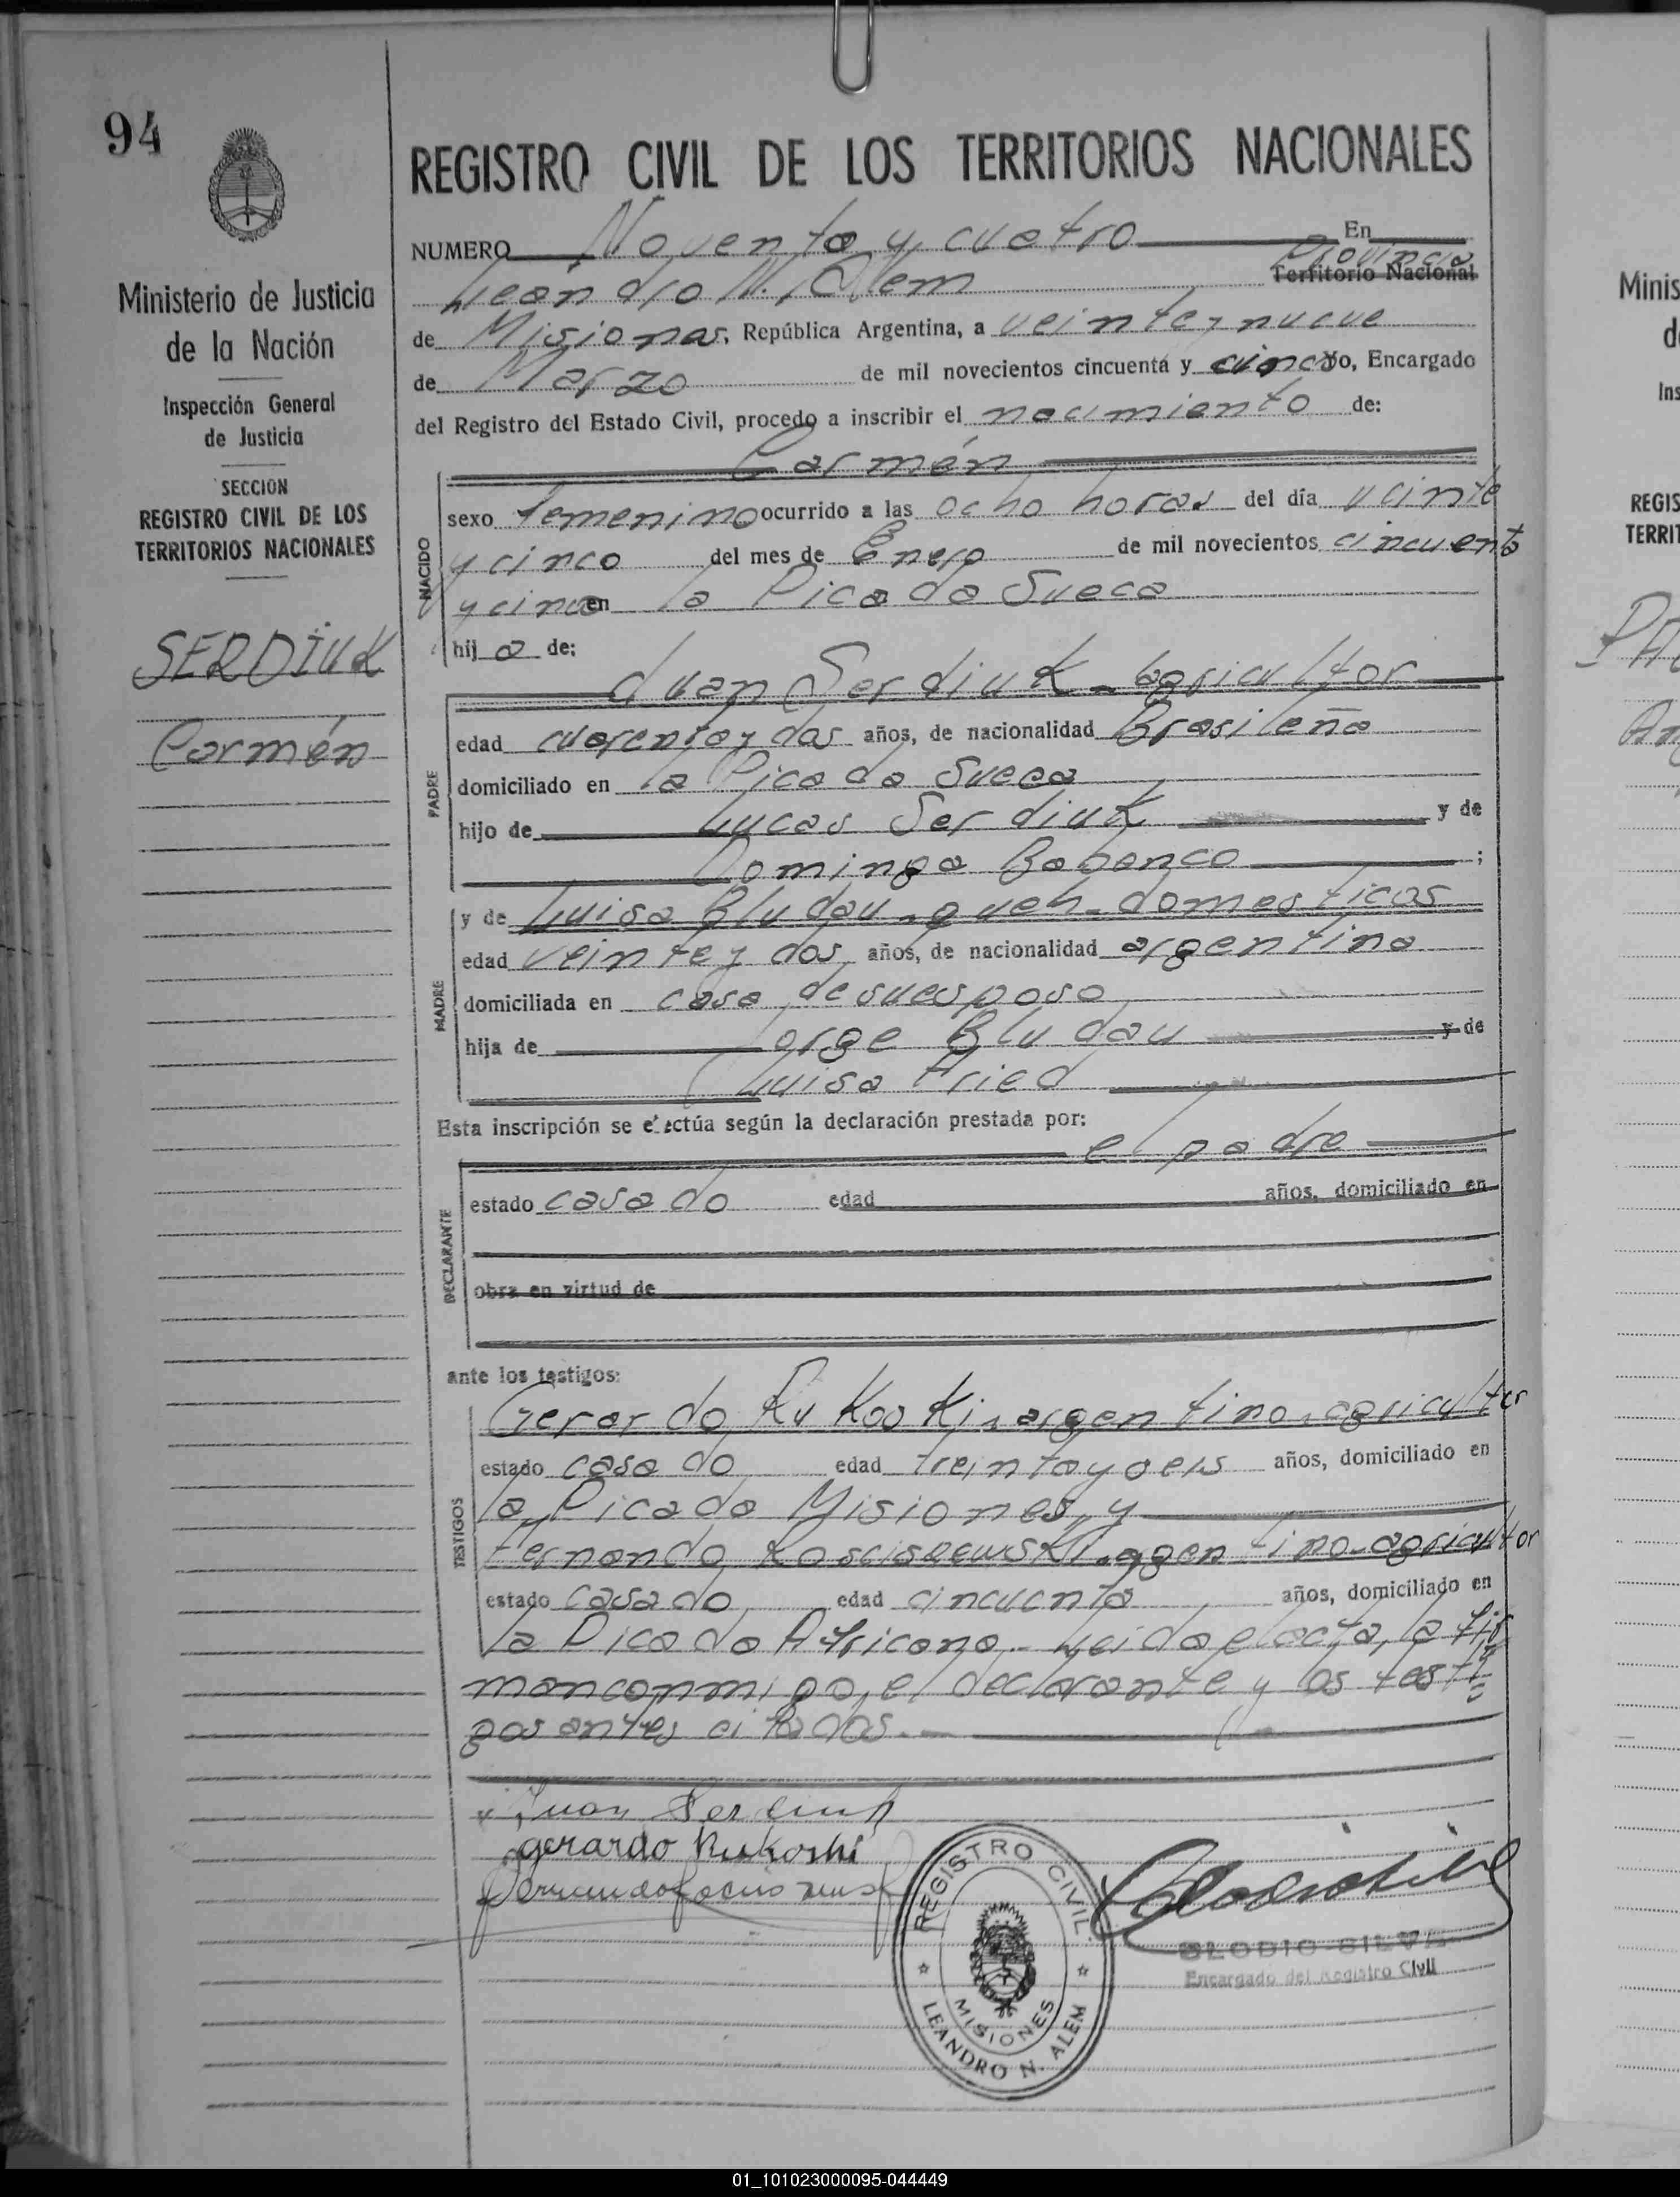 94
REGISTRO CIVIL DE LOS TERRITORIOS NACIONALES
NUMERO Noventa y cuatro En
Leandro N. Alem Provincia Territorio Nacional
de Misiones, República Argentina, a veinte y nueve
de Marzo de mil novecientos cincuenta y cinco yo, Encargado
del Registro del Estado Civil, procedo a inscribir el nacimiento de:
Ministerio de Justicia
de la Nación
Inspección General
de Justicia
SECCION
REGISTRO CIVIL DE LOS
TERRITORIOS NACIONALES
SERDIUK
Carmén
NACIDO
Carmén
sexo femenino ocurrido a las ocho horas del día veinte
y cinco del mes de Enero de mil novecientos cincuenta
y cinco en la Picada Sueca
hij a de:
PADRE
Juan Serdiuk - agricultor
edad cuarenta y dos años, de nacionalidad Brasileña
domiciliado en la Picada Sueca
hijo de Lucas Serdiuk y de
Dominga Babenco ;
MADRE
y de Luisa Bludau - queh. domesticos
edad veinte y dos años, de nacionalidad argentina
domiciliada en casa de su esposo
hija de Jorge Bludau y de
Luisa Fried
Esta inscripción se efectúa según la declaración prestada por:
DECLARANTE
el padre
estado casado edad años, domiciliado en
obra en virtud de
ante los testigos:
TESTIGOS
Gerardo Rukoski - argentino - agricultor
estado casado edad treinta y seis años, domiciliado en
la Picada Misiones, y
Fernando argentino - agricultor
estado casado edad cincuenta años, domiciliado en
la Picada Africana - Leida el acta, la fir
man conmigo, el declarante y los testi
gos antes citados. -
Juan Serdiuk
gerardo Rukoshi
Fernando
REGISTRO CIVIL
MISIONES
LEANDRO N. ALEM
CLODIO SILVA
Encargado del Registro Civil
Minis
d
Ins
REGIS
TERRI
01_101023000095-044449